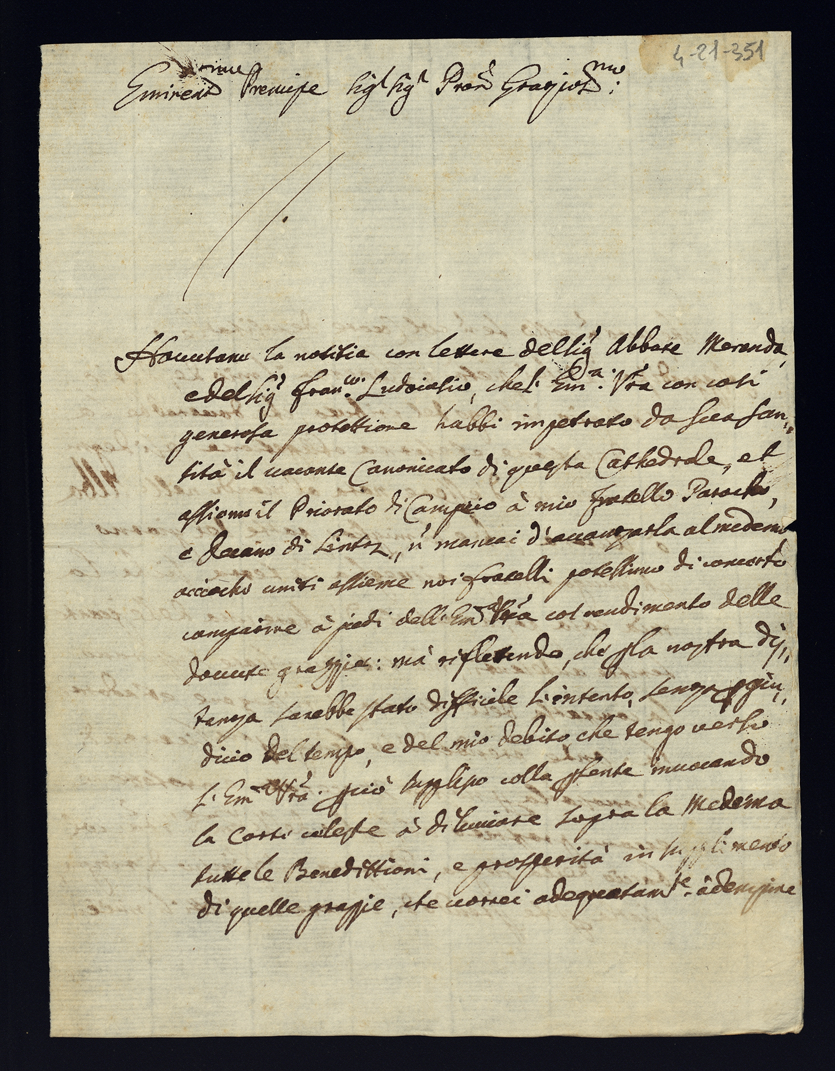 4-21-351
Eminent.mo Prencipe Sig.r Sig.r Pron Grazios.mo:
Havutane la notitia con lettere del Sig.r Abbate Meranda,
e del Sig.r Fran.co: Ludoiatio, che l'Em.a: V'ra con cosi
generosa protettione habbi impetrato da Sua San-
tità il vacante Canonicato di questa Cathedrale, et
assieme il Priorato di Campeio à mio fratello Parocho,
e Decano di Lintz, n' mancai d'avanzarla al medemo
acciochè uniti assieme noi fratelli potessimo di concerto
comparire à piedi dell'Em.a V'ra col rendimento delle
dovute grazzie: mà riflettendo, che p la nostra dis-
tanza sarebbe stato difficile l'intento, senza pgiu-
dicio del tempo, e del mio debito che tengo verso
l'Em.a V'ra. pciò supplisco colla pñte invocando
la Corte celeste à diluviare sopra la Medema
tutte le Benedittioni, e prosperità in supplimento
di quelle grazzie, che vorrei adequatam.te adempire